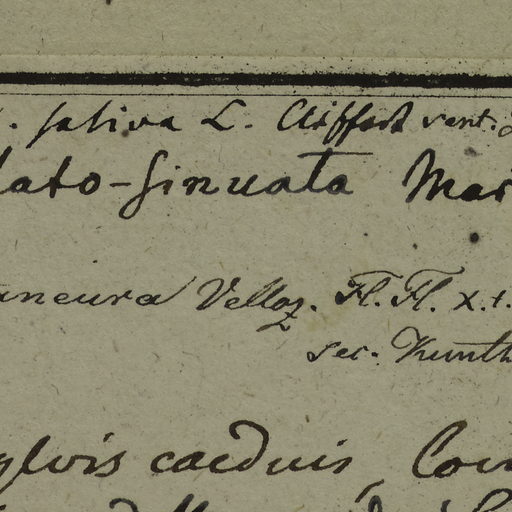 . sativa L. Cliffort vent.
lato-sinuata Mar
aneura Velloz. Fl. Fl. x. t.
sec. Kunth
ylvis caeduis, Con